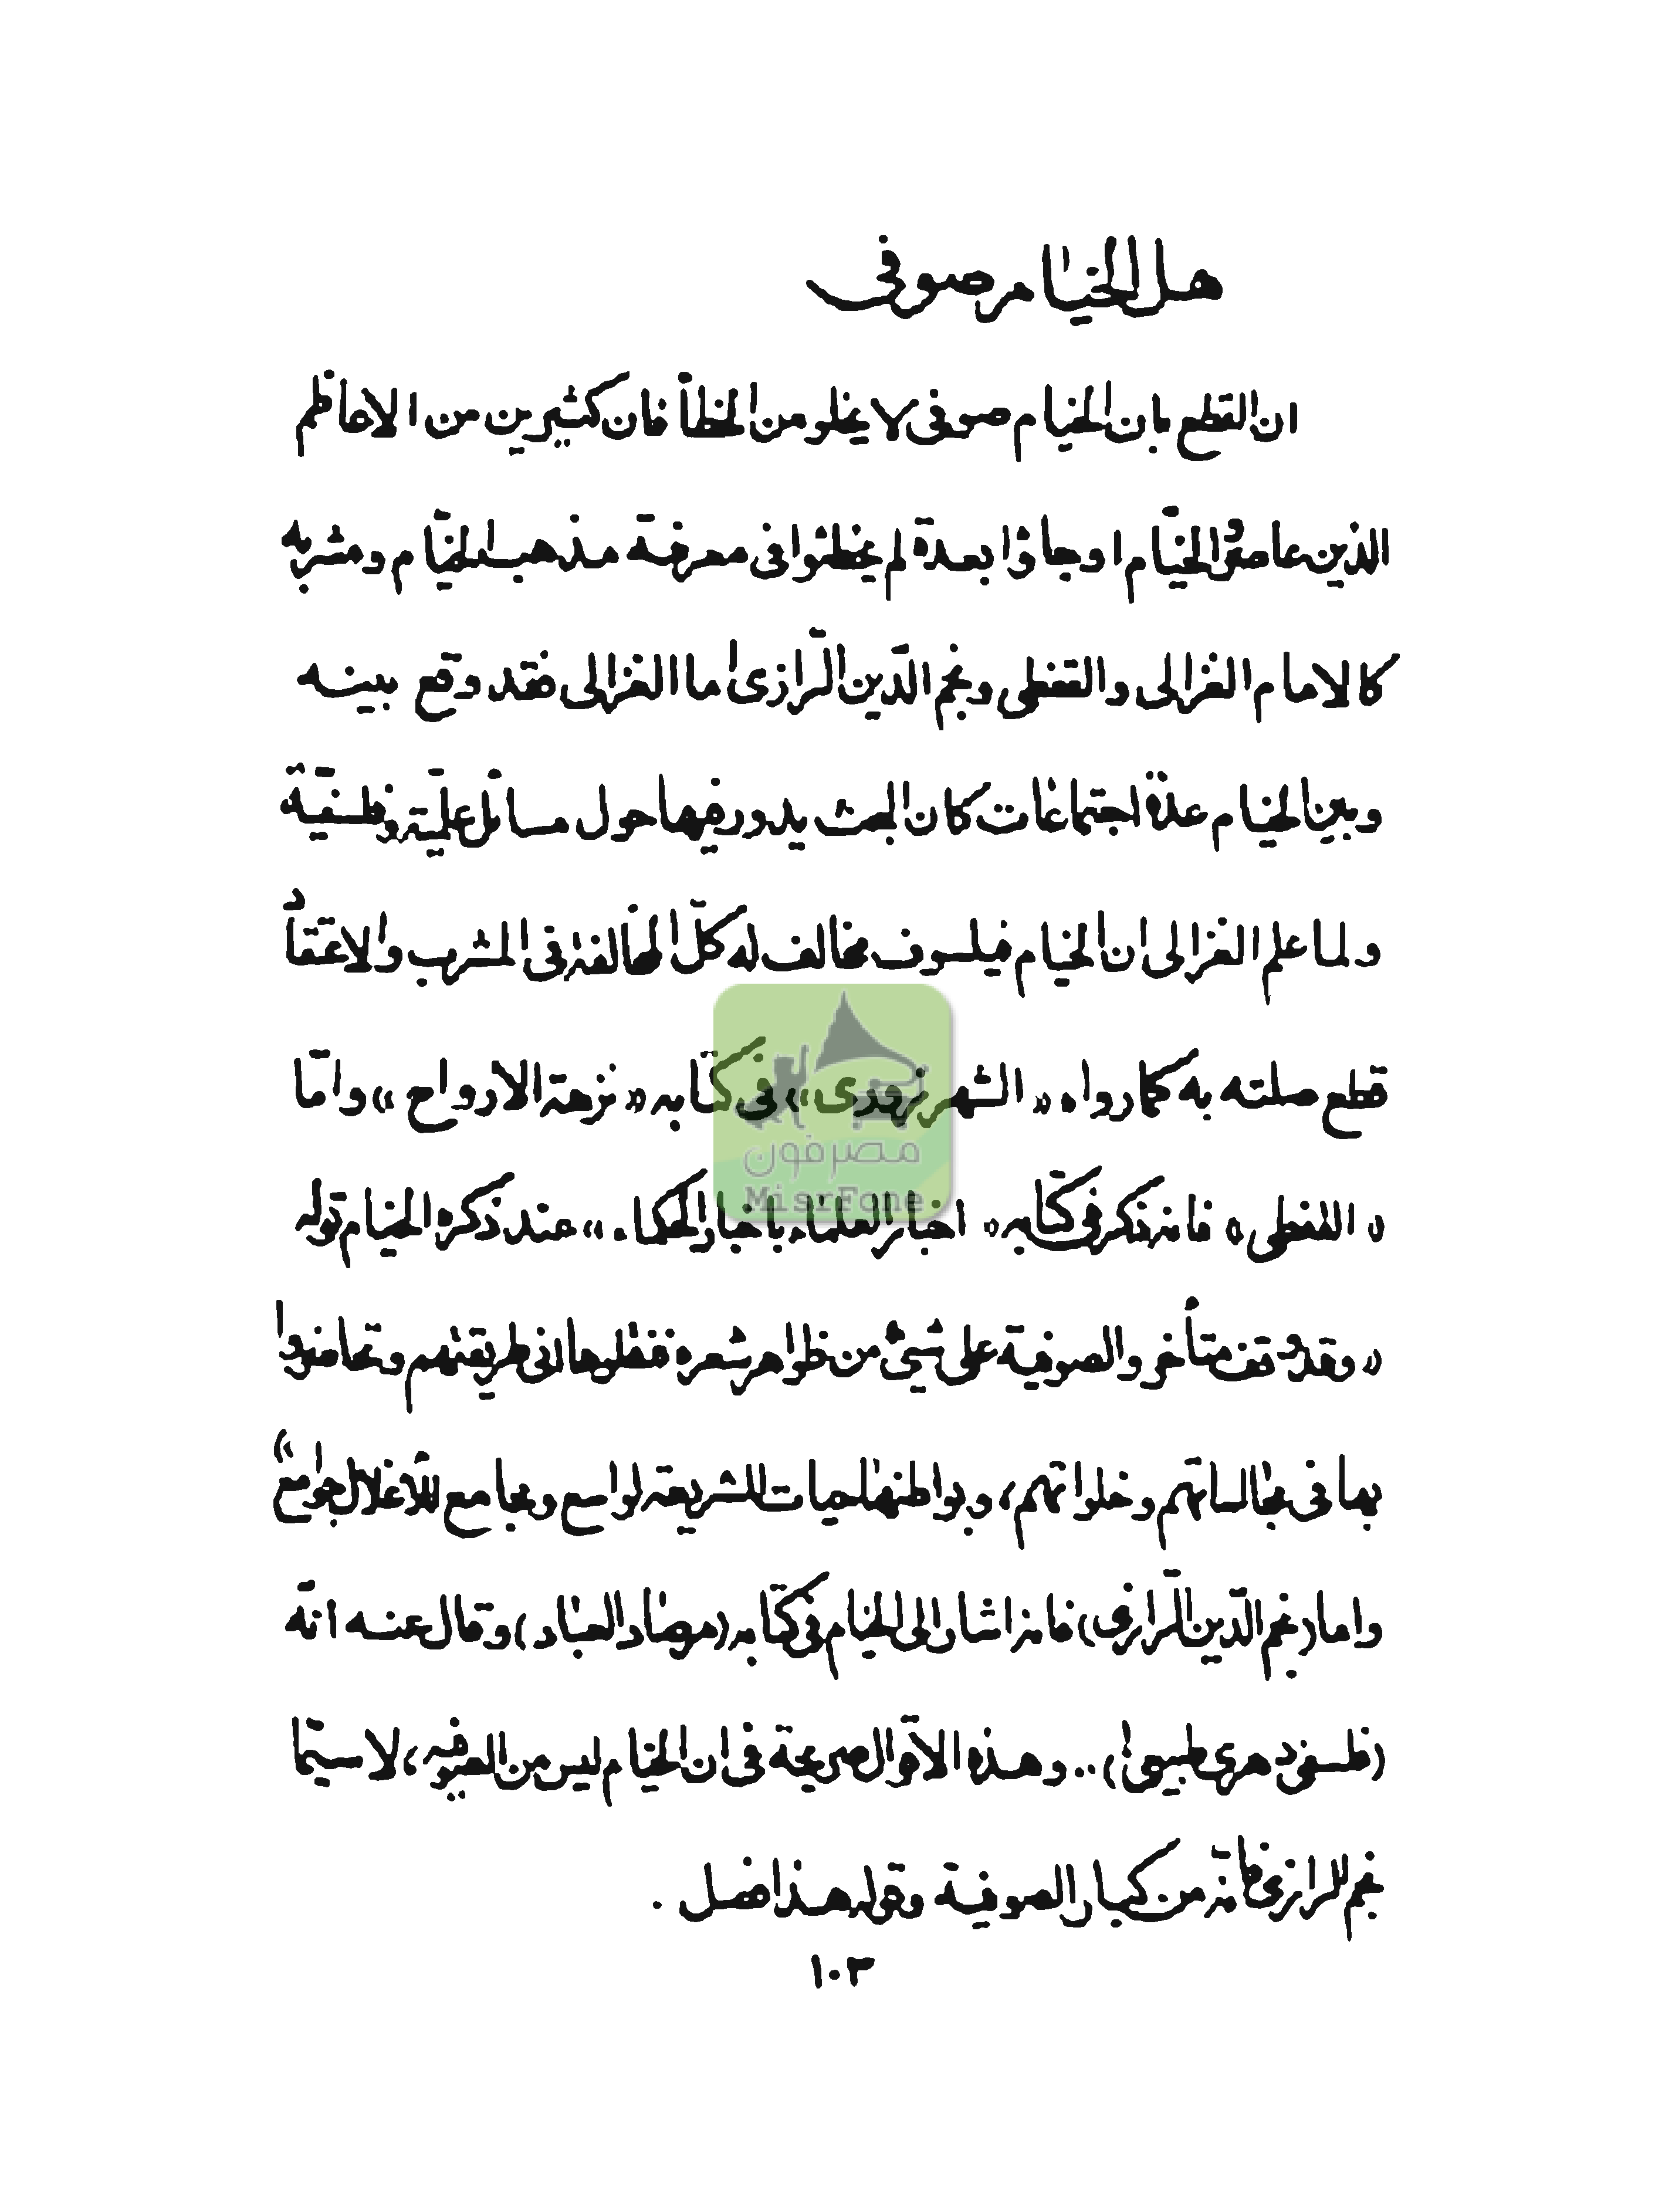 هل الخيام صوفى
ان القطع بان الخيام صوفى لا يخلو من الخطأ فان كثيرين من الاعاظم
الذين عاصروا الخيّام او جاؤا بعدة لم يخطئوا فى معرفة مذهب الخيّام ومشربه
كالامام الغزالى والقفطى ونجم الدّين الرّازى اما الغزالى فقد وقع بينه
وبين الخيام عدّة اجتماعات كان البحث يدور فيها حول مسائل علميّة وفلسفيّة
ولما علم الغزالى ان الخيام فيلسوف مخالف له كلّ المخالفة فى المشرب والاعتقاد
قطع صلته به كما رواه «الشهرزورى» فى كتابه «نزهة الارواح» وامّا
«القفطى» فانه ذكر فى كتابه «اخبار العلماء باخبار الحكماء» عند ذكره الخيام قوله
«وقد وقف متأخر والصوفية على شيئ من ظواهر شعره فنقلوها الى طريقتهم وتحاضروا
بها فى مجالساتهم وخلواتهم، وبواطنها حيات للشريعة لواسع ومجامع للأغلال جوامع»
واما (نجم الدّين الرّازى) فانه اشار الى الخيام فى كتابه (مرصاد العباد) وقال عنه انّه
(فلسفى دهرى طبيعى) .. وهذه الاقوال صريحة فى ان الخيام ليس من الصوفيه، لا سيّما
نجم الرازى فانّه من كبار الصوفية وقوله هذا فصل .
١٠٣
مصرفون
MisrFone